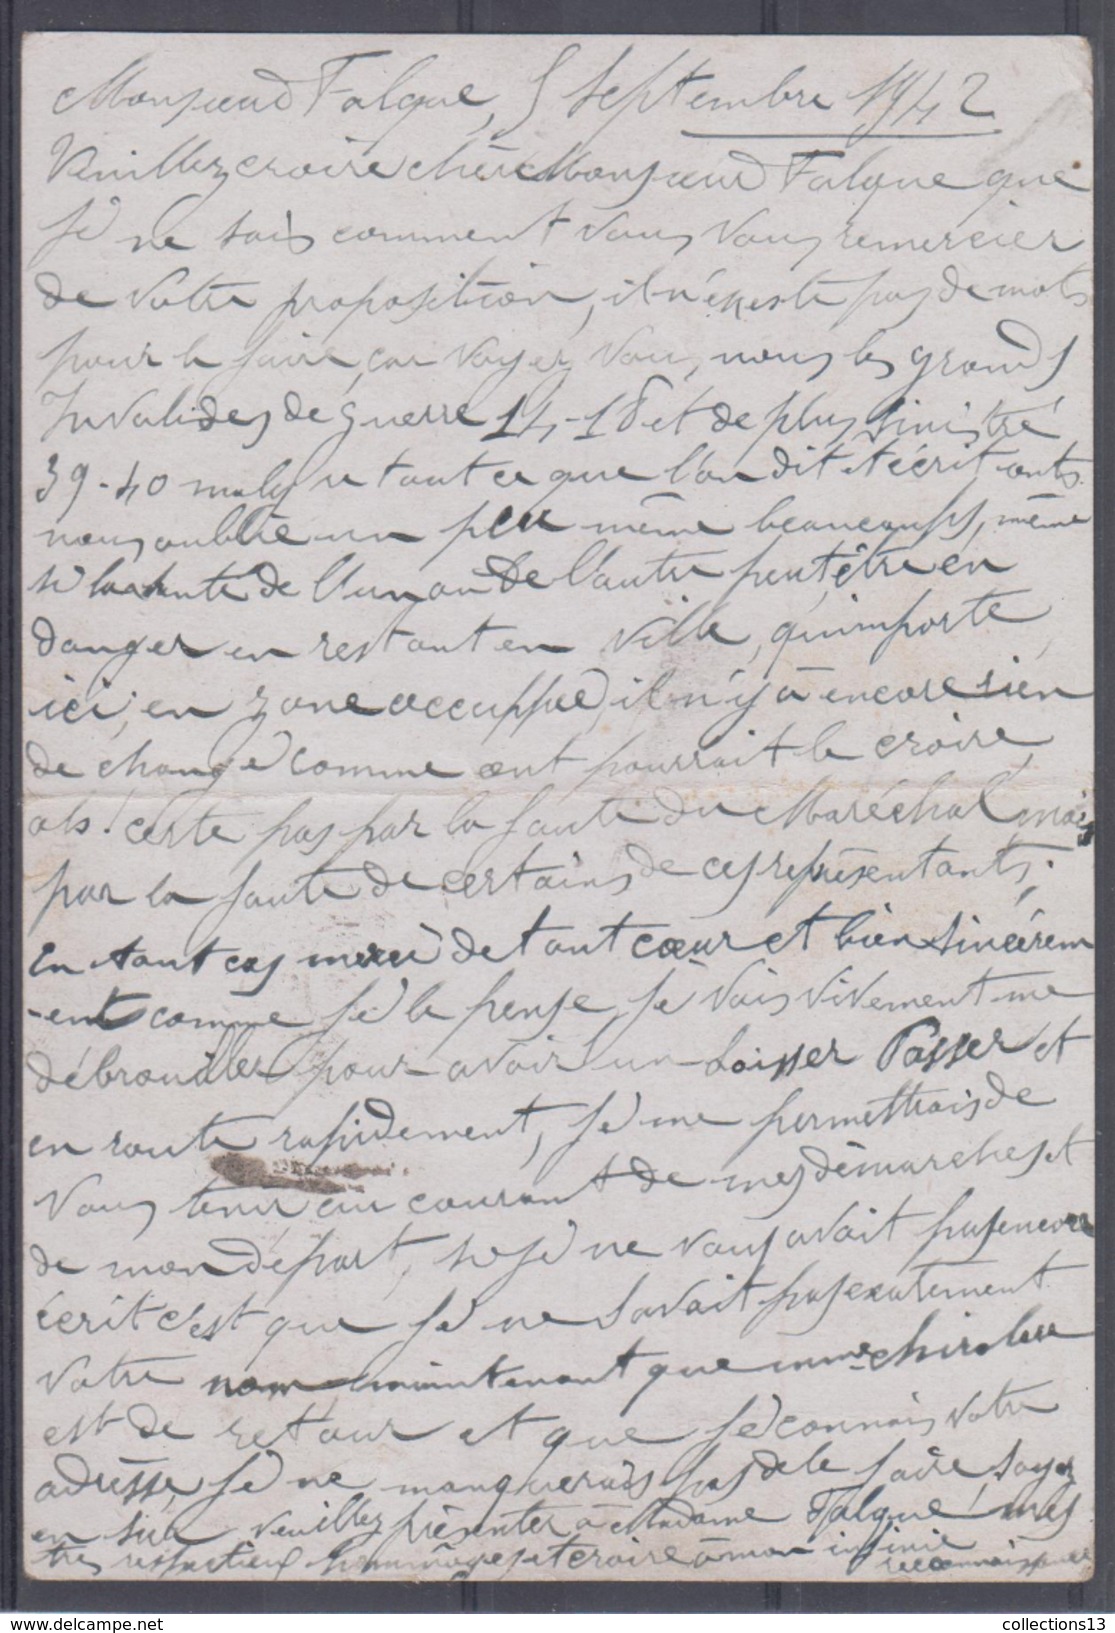 Monsieur Falque, 5 Septembre 1942
Veuillez croire cher Monsieur Falque que
je ne sais comment vous vous remercier
de votre proposition, il n'éxiste pas de mots
pour le faire, car voyez vous, nous les grands
Invalides de guerre 14-18 et de plus sinistré
39-40 malgre tout ce que l'on dit et écrit onts
nous oublie un peu même beaucoups, même
si la santé de l'un ou de l'autre peut être en
danger en restant en ville, qu'importe
ici, en zone occuppée, il n'y à encore rien
de changé comme ont pourrait le croire,
oh! certe pas par la faute du Maréchal, mais
par la faute de certains de ces représentants,
En tout cas merci de tout cœur et bien sincèrem
-ent comme je le pense, je vais vivement me
débrouiller pour avoir un Laisser Passer et
en route rapidement, je me permettrais de
vous tenir au courant de mes démarches et
de mon départ, si je ne vous avait pas encore
écrit c'est que je ne savait pas exatement
votre nom maintenant que mme
est de retour et que je connais votre
adresse, je ne manquerais pas de le faire, soyez
en sur veuillez présenter à Madame Falque mes
très respectieux hommages et croire à mon infinie
reconnaissance
collections13